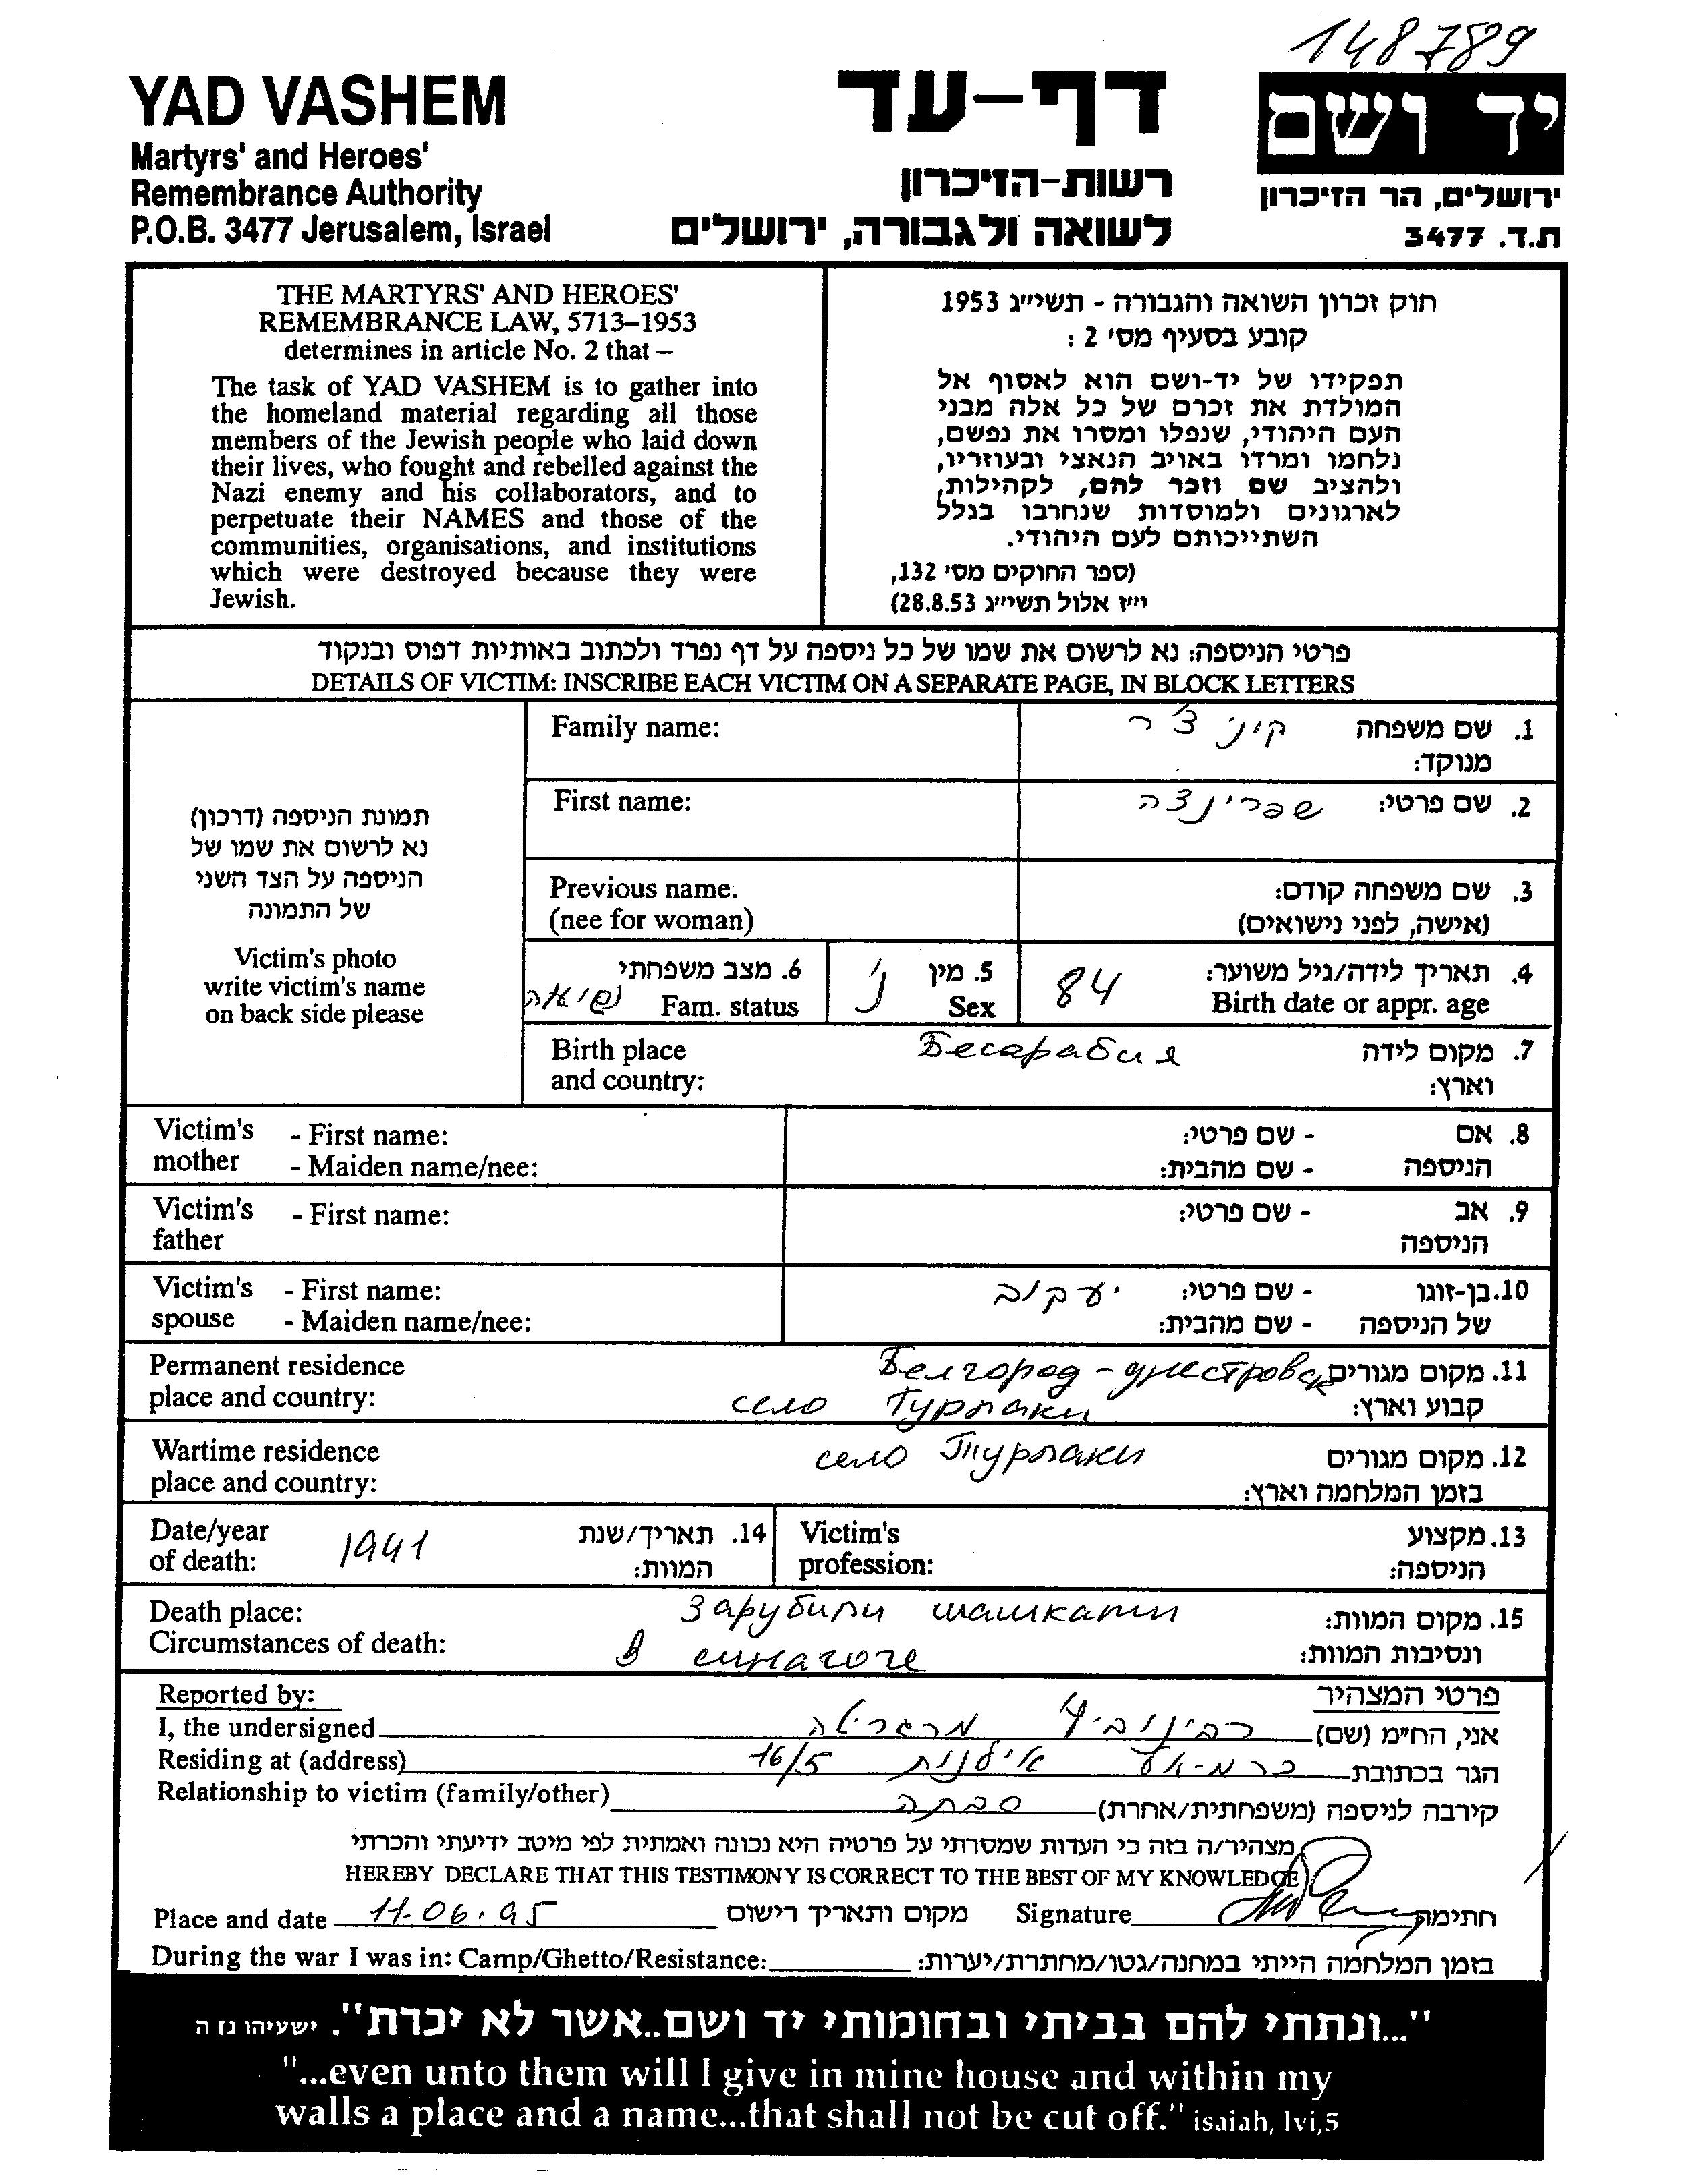 148789
YAD VASHEM
Martyrs' and Heroes'
Remembrance Authority
P.O.B. 3477 Jerusalem, Israel
דף-עד
רשות-הזיכרון
לשואה ולגבורה, ירושלים
יד ושם
ירושלים, הר הזיכרון
ת.ד. 3477
THE MARTYRS' AND HEROES'
REMEMBRANCE LAW, 5713–1953
determines in article No. 2 that –
The task of YAD VASHEM is to gather into
the homeland material regarding all those
members of the Jewish people who laid down
their lives, who fought and rebelled against the
Nazi enemy and his collaborators, and to
perpetuate their NAMES and those of the
communities, organisations, and institutions
which were destroyed because they were
Jewish.
חוק זכרון השואה והגבורה - תשי״ג 1953
קובע בסעיף מס׳ 2 :
תפקידו של יד-ושם הוא לאסוף אל
המולדת את זכרם של כל אלה מבני
העם היהודי, שנפלו ומסרו את נפשם,
נלחמו ומרדו באויב הנאצי ובעוזריו,
ולהציב שם וזכר להם, לקהילות,
לארגונים ולמוסדות שנחרבו בגלל
השתייכותם לעם היהודי.
(ספר החוקים מס׳ 132,
י״ז אלול תשי״ג 28.8.53)
פרטי הניספה: נא לרשום את שמו של כל ניספה על דף נפרד ולכתוב באותיות דפוס ובנקוד
DETAILS OF VICTIM: INSCRIBE EACH VICTIM ON A SEPARATE PAGE, IN BLOCK LETTERS
תמונת הניספה (דרכון)
נא לרשום את שמו של
הניספה על הצד השני
של התמונה
Victim's photo
write victim's name
on back side please
Family name: קינצ'ר 1. שם משפחה
מנוקד:
First name: שפרינצה 2. שם פרטי:
Previous name. 3. שם משפחה קודם:
(nee for woman) (אישה, לפני נישואים)
6. מצב משפחתי 5. מין 4. תאריך לידה/גיל משוער:
נשואה Fam. status נ' Sex 84 Birth date or appr. age
Birth place Бесарабия 7. מקום לידה
and country: וארץ:
Victim's - First name: - שם פרטי: 8. אם
mother - Maiden name/nee: - שם מהבית: הניספה
Victim's - First name: - שם פרטי: 9. אב
father הניספה
Victim's - First name: יעקוב - שם פרטי: 10. בן-זוגו
spouse - Maiden name/nee: - שם מהבית: של הניספה
Permanent residence Белгород-днестровск 11. מקום מגורים
place and country: село Турлаки קבוע וארץ:
Wartime residence село Турлаки 12. מקום מגורים
place and country: בזמן המלחמה וארץ:
Date/year 1941 14. תאריך/שנת Victim's 13. מקצוע
of death: המוות: profession: הניספה:
Death place: Зарубили шашками 15. מקום המוות:
Circumstances of death: в синагоге ונסיבות המוות:
Reported by: פרטי המצהיר
I, the undersigned רבינוביץ מרגריטה אני, הח״מ (שם)
Residing at (address) כרמיאל אילנות 16/5 הגר בכתובת
Relationship to victim (family/other) סבתה קירבה לניספה (משפחתית/אחרת)
מצהיר/ה בזה כי העדות שמסרתי על פרטיה היא נכונה ואמתית לפי מיטב ידיעתי והכרתי
HEREBY DECLARE THAT THIS TESTIMONY IS CORRECT TO THE BEST OF MY KNOWLEDGE
Place and date 11.06.95 מקום ותאריך רישום Signature חתימה
During the war I was in: Camp/Ghetto/Resistance: בזמן המלחמה הייתי במחנה/גטו/מחתרת/יערות:
"...ונתתי להם בביתי ובחומותי יד ושם..אשר לא יכרת". ישעיהו נז ה
"...even unto them will I give in mine house and within my
walls a place and a name...that shall not be cut off." isaiah, lvi,5